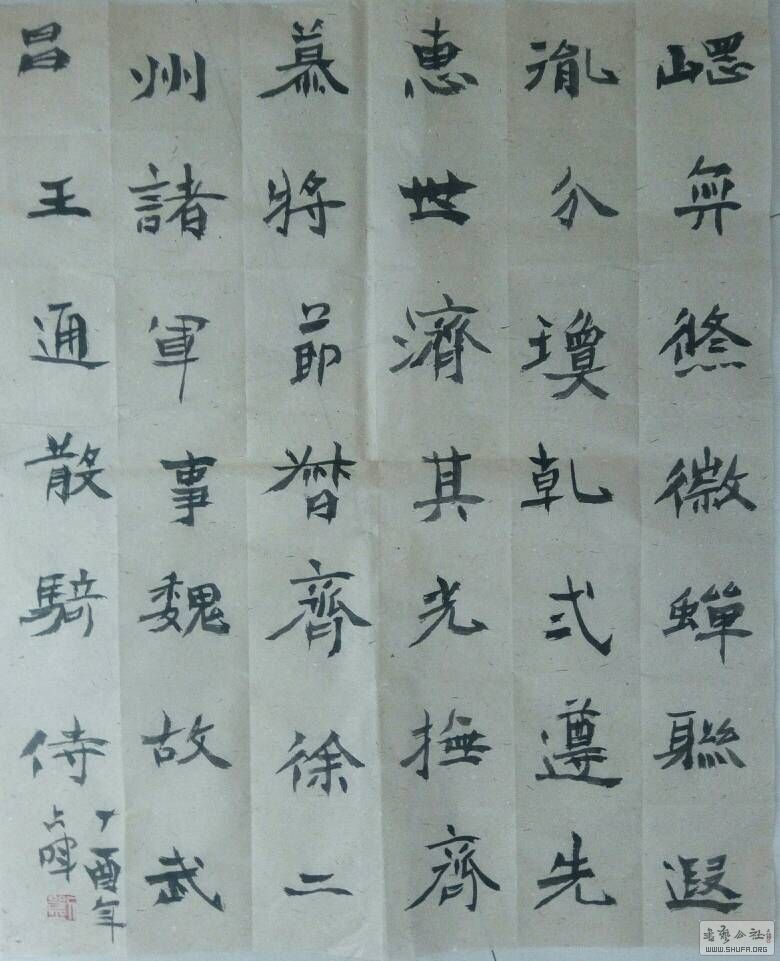 悠微蟬聯遐
胤分瓊乾弍遵先
惠世濟其光撫齊
慕將節督齊徐二
州諸軍事魏故武
昌王通散騎侍
丁酉年
占暉
书艺公社
WWW.SHUFA.ORG